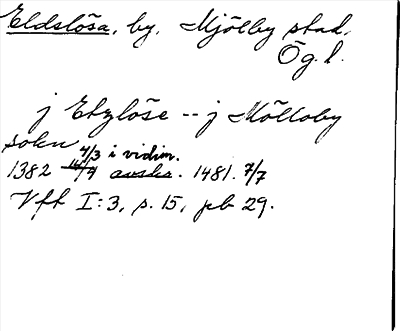 Eldslösa, by, Mjölby stad,
Ög. l.
j Elzlöse -- j Mölloby
sokn
4/3 i vidim.
1382 avskr. 1481. 7/7
Vfk I:3, s. 15, pb 29.